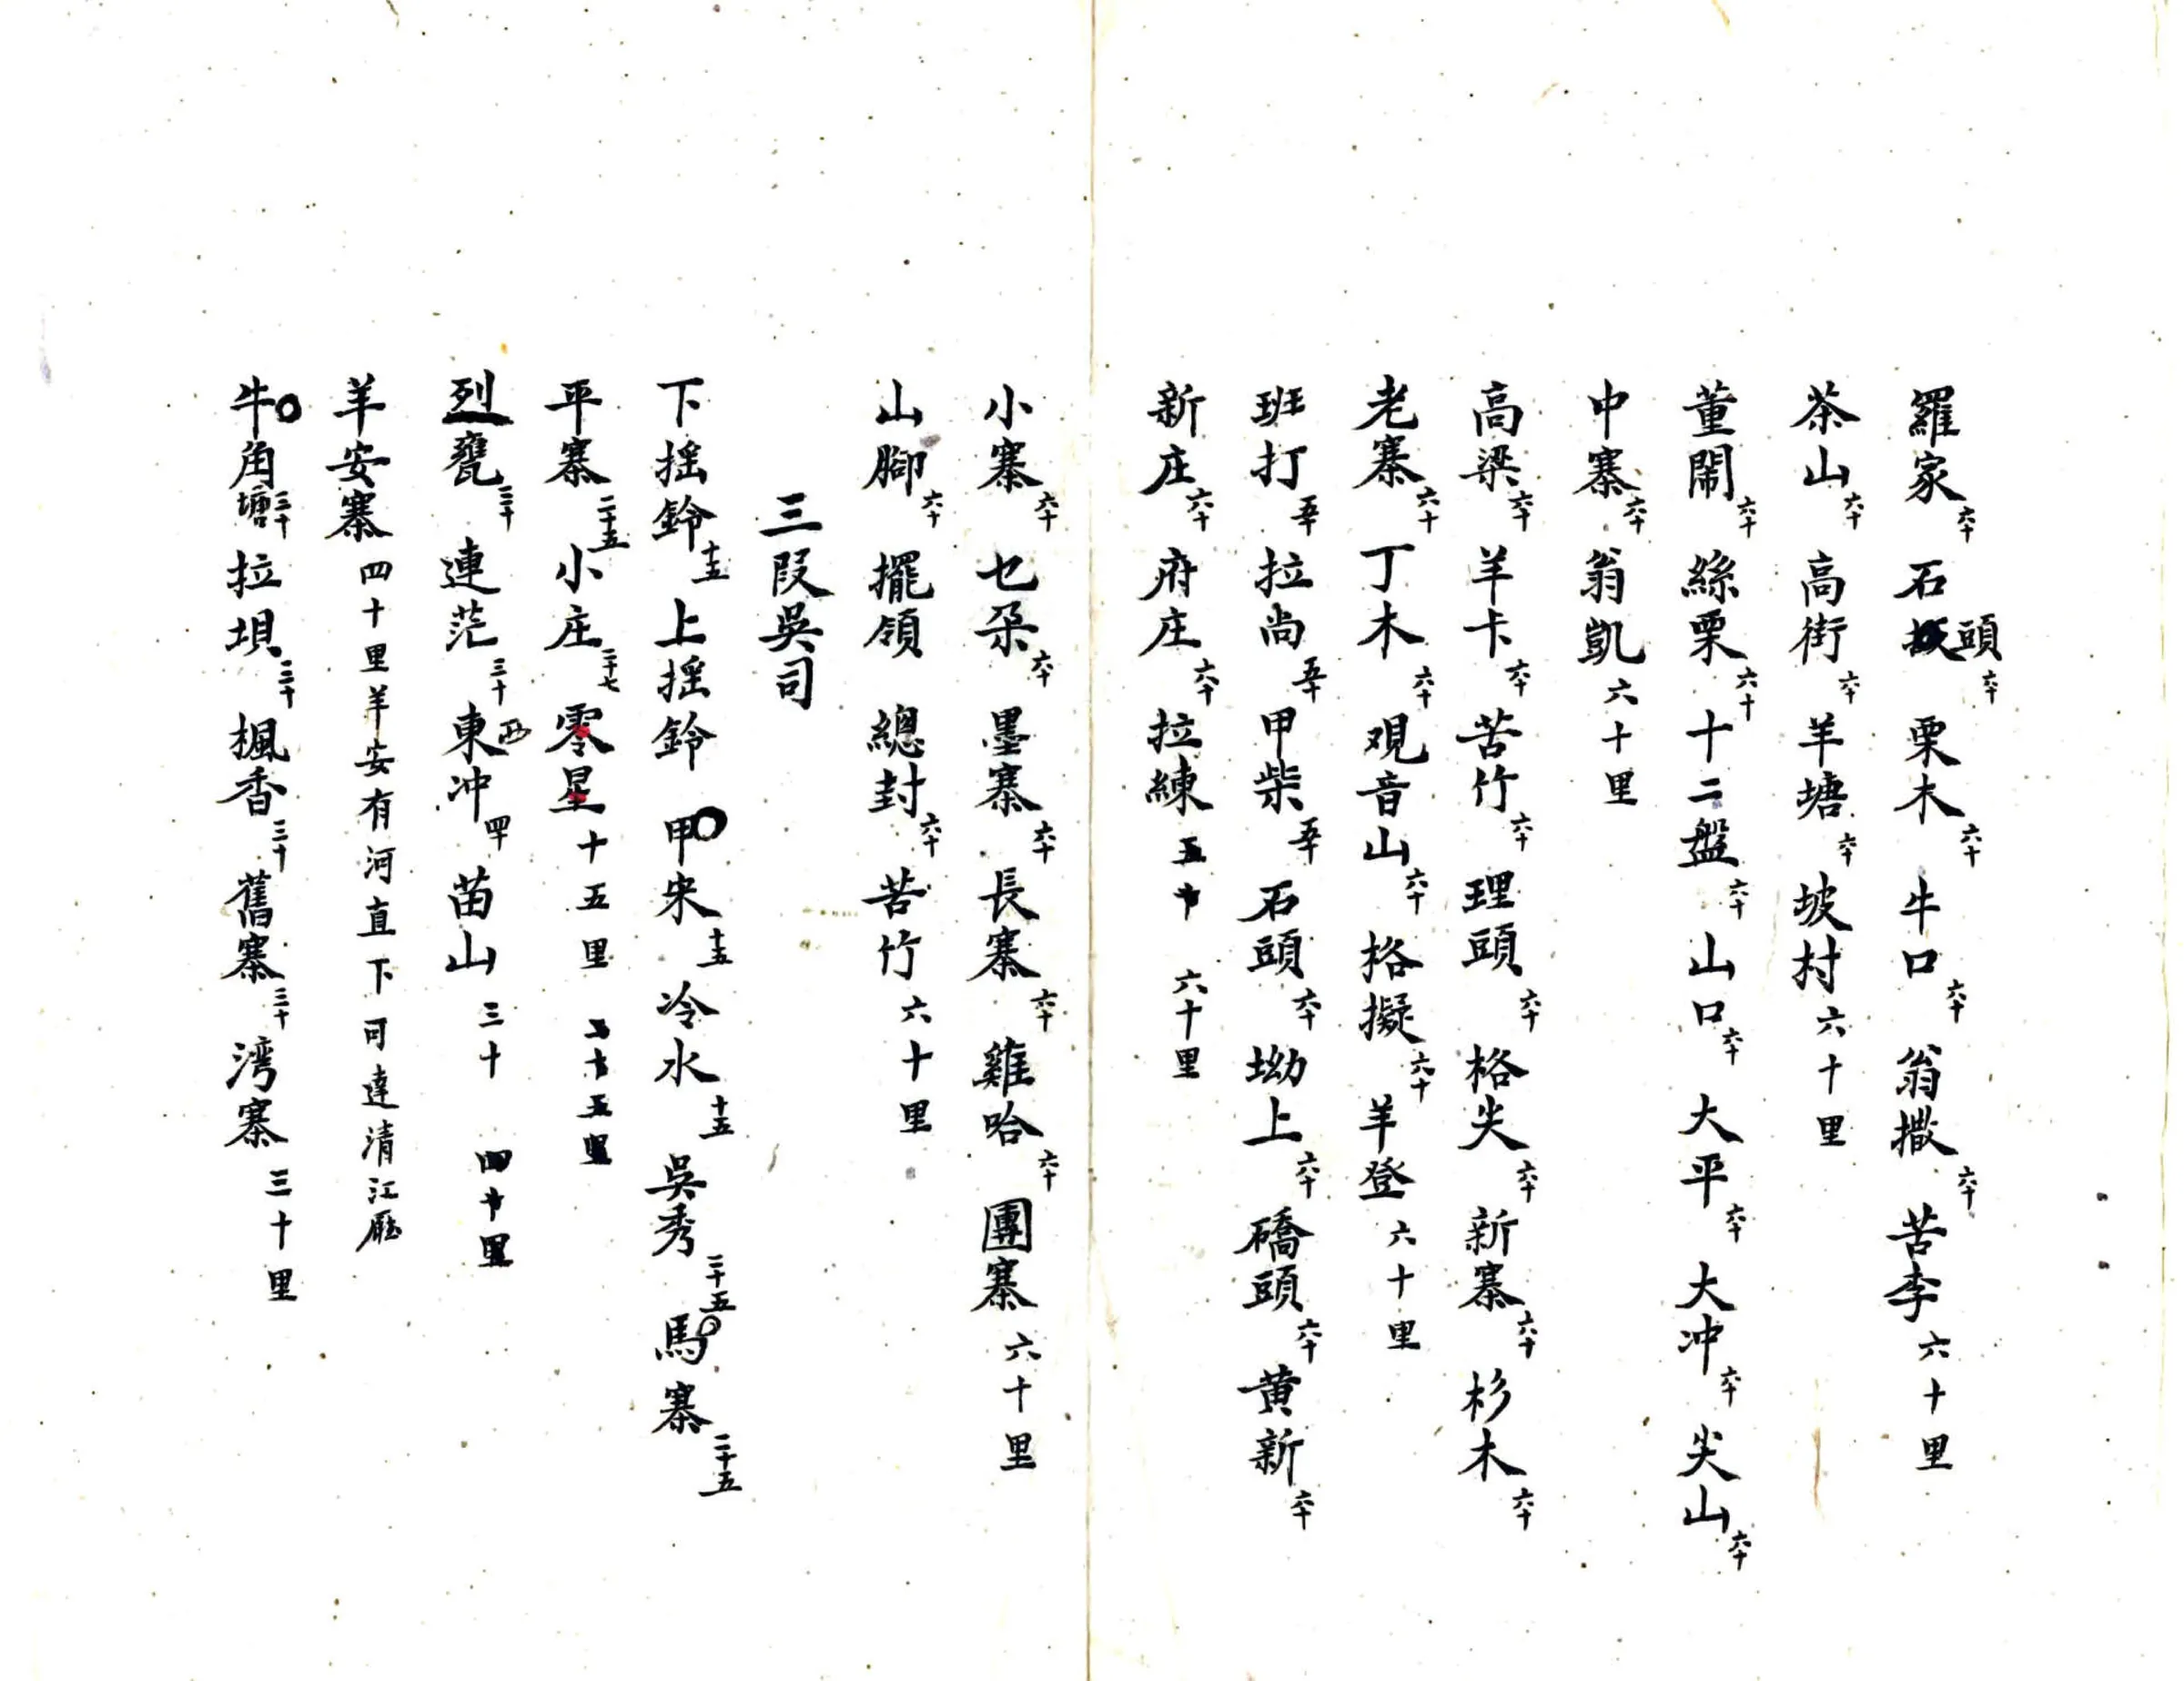 羅家六十 石頭六十 栗木六十 牛口六十 翁撒六十 苦李六十里
茶山六十 高街六十 羊塘六十 坡村六十里
董閙六十 絲栗六十 十二盤六十 山口六十 大平六十 大冲六十 尖山六十
中寨六十 翁凱六十里
高梁六十 羊卡六十 苦竹六十 理頭六十 格尖六十 新寨六十 杉木六十
老寨六十 丁木六十 观音山六十 格擬六十 羊登六十里
班打五十 拉尚五十 甲柴五十 石頭六十 坳上六十 礄頭六十 黄新六十
新庄六十 府庄六十 拉練五十 六十里
小寨六十 乜朶六十 墨寨六十 長寨六十 雞哈六十 團寨六十里
山腳六十 擺領 總封六十 苦竹六十里
三叚吳司
下摇鈴十五 上摇鈴 甲宋十五 冷水十五 吳秀二十五 馬寨二十五
平寨二十五 小庄二十七 零星十五里 二十五里
烈甕三十 連茫三十 東西冲四十 苗山三十 四十里
羊安寨四十里羊安有河直下可達清江廳
牛角塘三十 拉垻三十 楓香三十 舊寨三十 湾寨三十里